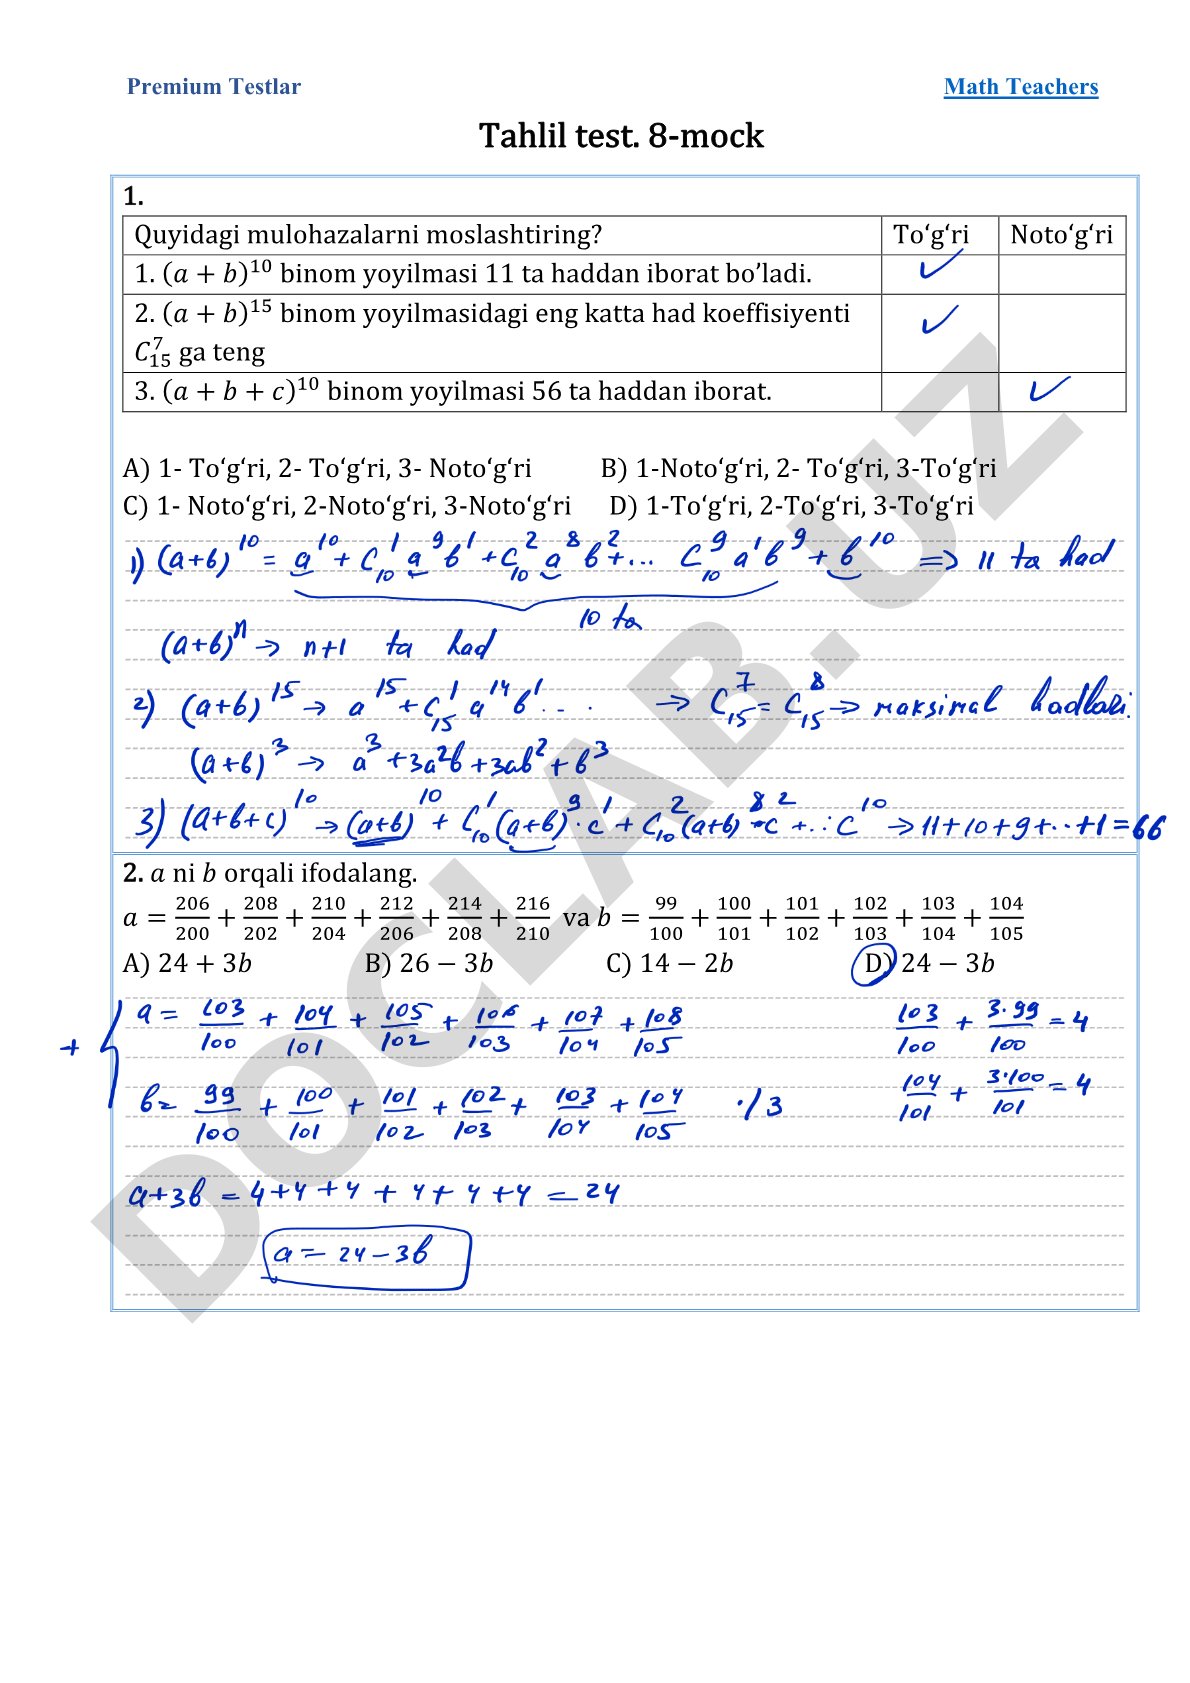 Premium Testlar Math Teachers
Tahlil test. 8-mock
1.
Quyidagi mulohazalarni moslashtiring? To‘g‘ri Noto‘g‘ri
1. (a + b)^10 binom yoyilmasi 11 ta haddan iborat bo’ladi. ✓
2. (a + b)^15 binom yoyilmasidagi eng katta had koeffisiyenti ✓
C_15^7 ga teng
3. (a + b + c)^10 binom yoyilmasi 56 ta haddan iborat. ✓
A) 1- To‘g‘ri, 2- To‘g‘ri, 3- Noto‘g‘ri B) 1-Noto‘g‘ri, 2- To‘g‘ri, 3-To‘g‘ri
C) 1- Noto‘g‘ri, 2-Noto‘g‘ri, 3-Noto‘g‘ri D) 1-To‘g‘ri, 2-To‘g‘ri, 3-To‘g‘ri
1) (a+b)^10 = a^10 + C_10^1 a^9 b^1 + C_10^2 a^8 b^2 + ... C_10^9 a^1 b^9 + b^10 => 11 ta had
10 ta
(a+b)^n → n+1 ta had
2) (a+b)^15 → a^15 + C_15^1 a^14 b^1 ... → C_15^7 = C_15^8 → maksimal hadlari.
(a+b)^3 → a^3 + 3a^2b + 3ab^2 + b^3
3) (a+b+c)^10 → (a+b)^10 + C_10^1 (a+b)^9 · c^1 + C_10^2 (a+b)^8 · c^2 + ... C^10 → 11+10+9+...+1=66
2. a ni b orqali ifodalang.
a = 206/200 + 208/202 + 210/204 + 212/206 + 214/208 + 216/210 va b = 99/100 + 100/101 + 101/102 + 102/103 + 103/104 + 104/105
A) 24 + 3b B) 26 − 3b C) 14 − 2b D) 24 − 3b
a = 103/100 + 104/101 + 105/102 + 106/103 + 107/104 + 108/105 103/100 + 3·99/100 = 4
+
b = 99/100 + 100/101 + 101/102 + 102/103 + 103/104 + 104/105 ·/3 104/101 + 3·100/101 = 4
a+3b = 4+4+4+4+4+4 = 24
a = 24 − 3b
DOCLAB.UZ